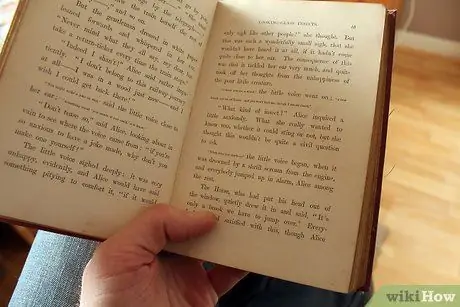 But the gentleman dressed in white paper
leaned forwards and whispered in her ear,
"Never mind what they all say, my dear, but
take a return-ticket every time the train stops."
"Indeed I shan't!" Alice said rather impa-
tiently. "I don't belong to this railway journey
at all—I was in a wood just now—and I
wish I could get back there!"
said the little voice close to
her ear:
"Don't tease so," said Alice, looking about in
vain to see where the voice came from; "if you're
so anxious to have a joke made, why don't you
make one yourself?"
The little voice sighed deeply: it was very
unhappy, evidently, and Alice would have said
something pitying to comfort it, "if it would
LOOKING-GLASS INSECTS.
only sigh like other people!" she thought. But
this was such a wonderfully small sigh, that she
wouldn't have heard it at all, if it hadn't come
quite close to her ear. The consequence of this
was that it tickled her ear very much, and quite
took off her thoughts from the unhappiness of
the poor little creature.
the little voice went on;
"What kind of insect?" Alice inquired a
little anxiously. What she really wanted to
know was, whether it could sting or not, but she
thought this wouldn't be quite a civil question
to ask.
the little voice began, when it
was drowned by a shrill scream from the engine,
and everybody jumped up in alarm, Alice among
the rest.
The Horse, who had put his head out of
the window, quietly drew it in and said, "It's
only a brook we have to jump over." Every-
satisfied with this, though Alice
wikiHow